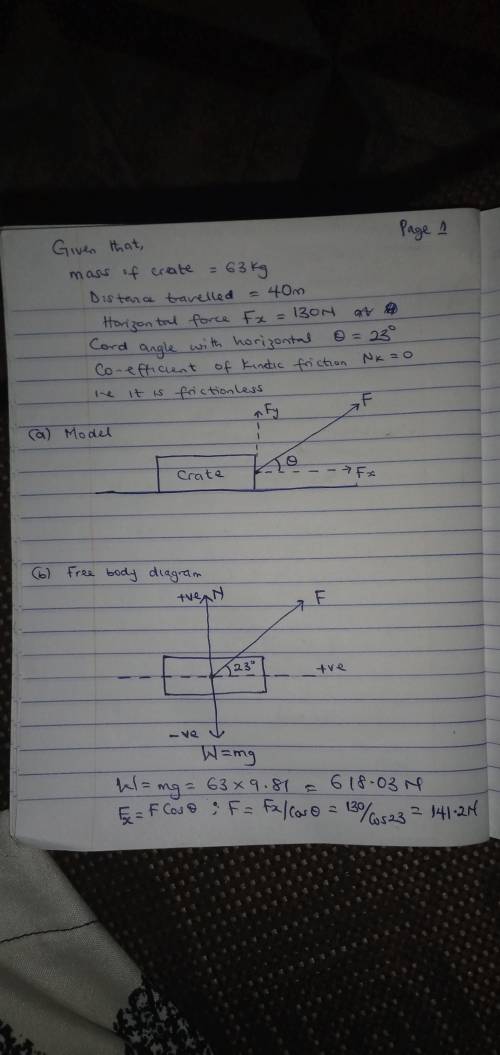 Page 1
Given that,
mass of crate = 63kg
Distance travelled = 40m
Horizontal force Fx = 130N at
Cord angle with horizontal θ = 23°
Co-efficient of Kinetic friction NK = 0
i.e it is frictionless
(a) Model
Fy
F
Crate
θ
Fx
(b) Free body diagram
+ve N
F
23°
+ve
-ve
W=mg
W = mg = 63 × 9.81 = 618.03 N
Fx = F Cosθ ; F = Fx/Cosθ = 130/Cos23 = 141.2N